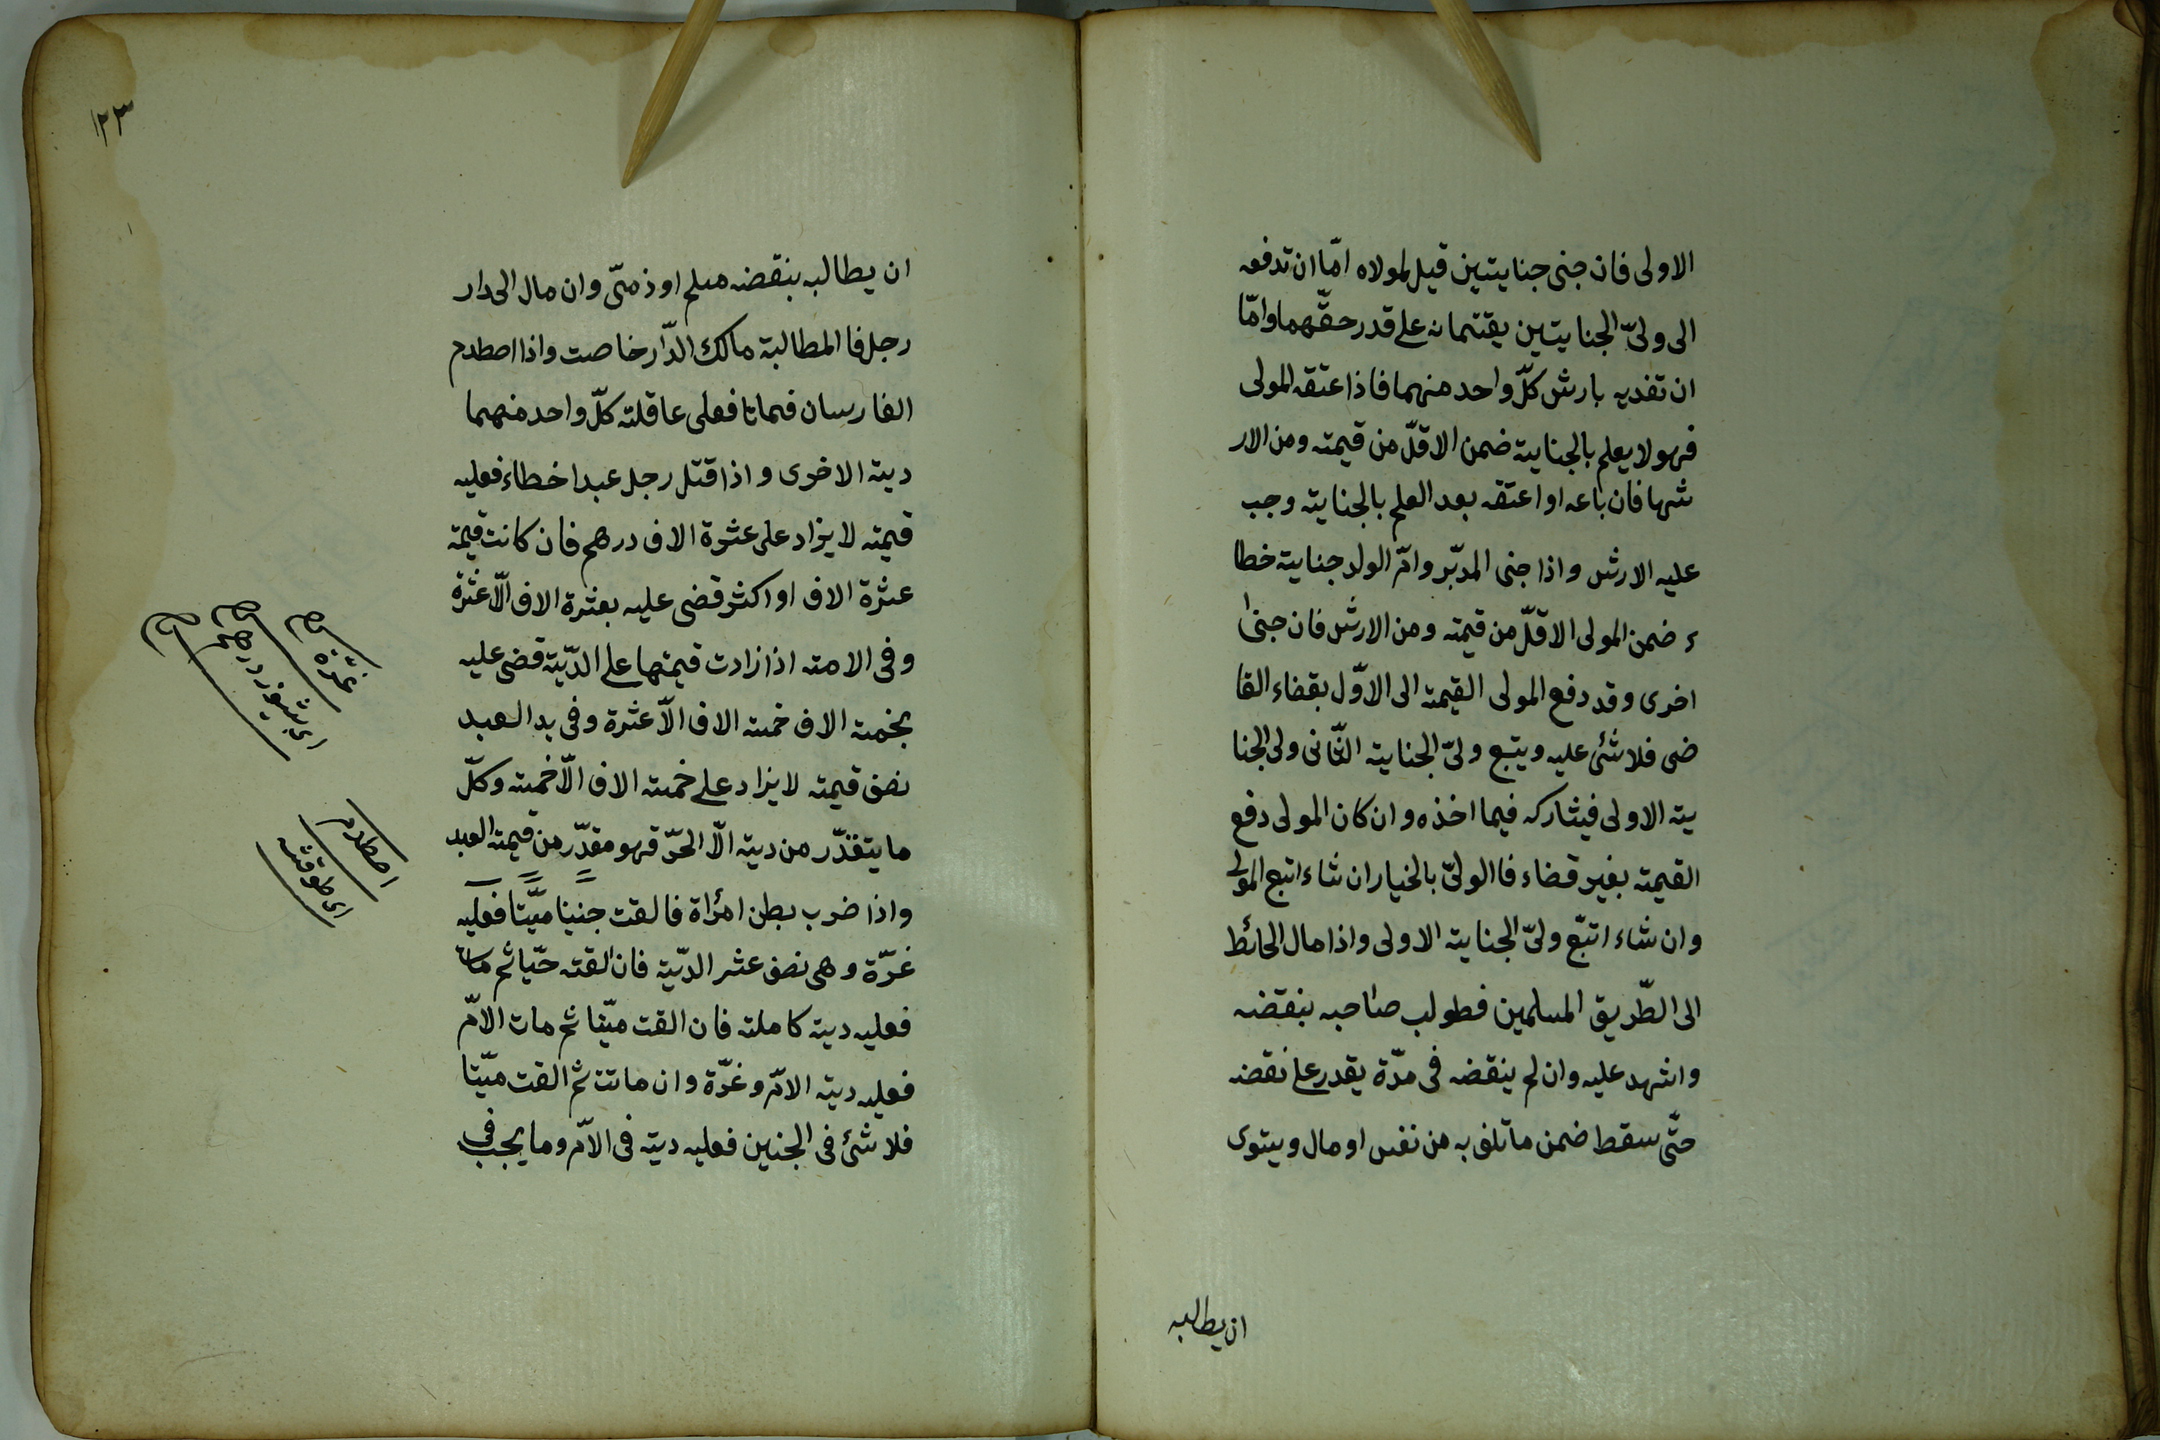 الاولى فان جنى جنايتين قيل لمولاه امّا ان تدفعه
الى ولىّ الجنايتين يقتسمانه على قدر حقّهما وامّا
ان تفديه بارش كلّ واحد منهما فاذا عتقه المولى
فهو لا يعلم بالجناية ضمن الاقلّ من قيمته ومن الار
شها فان باعه او اعتقه بعد العلم بالجناية وجب
عليه الارش واذا جنى المدبّر وامّ الولد جناية خطا
ء ضمن المولى الاقلّ من قيمته ومن الارش فان جنى
اخرى وقد دفع المولى القيمته الى الاوّل بقضاء القا
ضى فلا شئ عليه ويتبع ولىّ الجناية الثّانى ولى الجنا
ية الاولى فيشاركه فيما اخذه وان كان المولى دفع
القيمته بغير قضاء فا الولىّ بالخيار ان شاء اتبع المولى
وان شاء اتبّع ولىّ الجناية الاولى واذا مال الحائط
الى الطّريق المسلمين فطولب صاحبه بنقضه
واشهد عليه وان لم ينقضه فى مدّة يقدر على نقضه
حتّى سقط ضمن ما تلف به من نفس او مال ويستوى
ان يطالبه
١٢٣
ان يطالبه بنقضه مسلم او ذمّى وان مال الى دار
رجل فا المطالبة مالك الدّار خاصت واذا اصطدم
الفارسان فماتا فعلى عاقلته كلّ واحد منهما
دية الاخرى واذا قتل رجل عبدا خطاء فعليه
قيمته لا يزاد على عشرة الاف درهم فان كانت قيمة
عشرة الاف او اكثر قضى عليه بعشرة الاف الّا عشرة
وفى الامته اذا زادت قيمتها على الدّية قضى عليه
بخمسة الاف خمسة الاف الّا عشرة وفى يد العبد
نصف قيمته لا يزاد على خمسة الاف الّا خمسة وكلّ
ما يتقدّر من دية الّا الحرّ فهو مقدّر من قيمته العبد
واذا ضرب بطن امرأة فالقت جنينا ميّتا فعليه
غرّة وهى نصف عشر الدّية فان القته حيّا ثم مات
فعليه دية كاملة فان القت ميّتا ثم مات الامّ
فعليه دية الامّ وغرّة وان ماتت ثم القت ميّتا
فلا شئ فى الجنين فعليه دية فى الامّ وما يجب فى
غرّة
اى بشيوز درهم
اصطدم
اى طوقشه